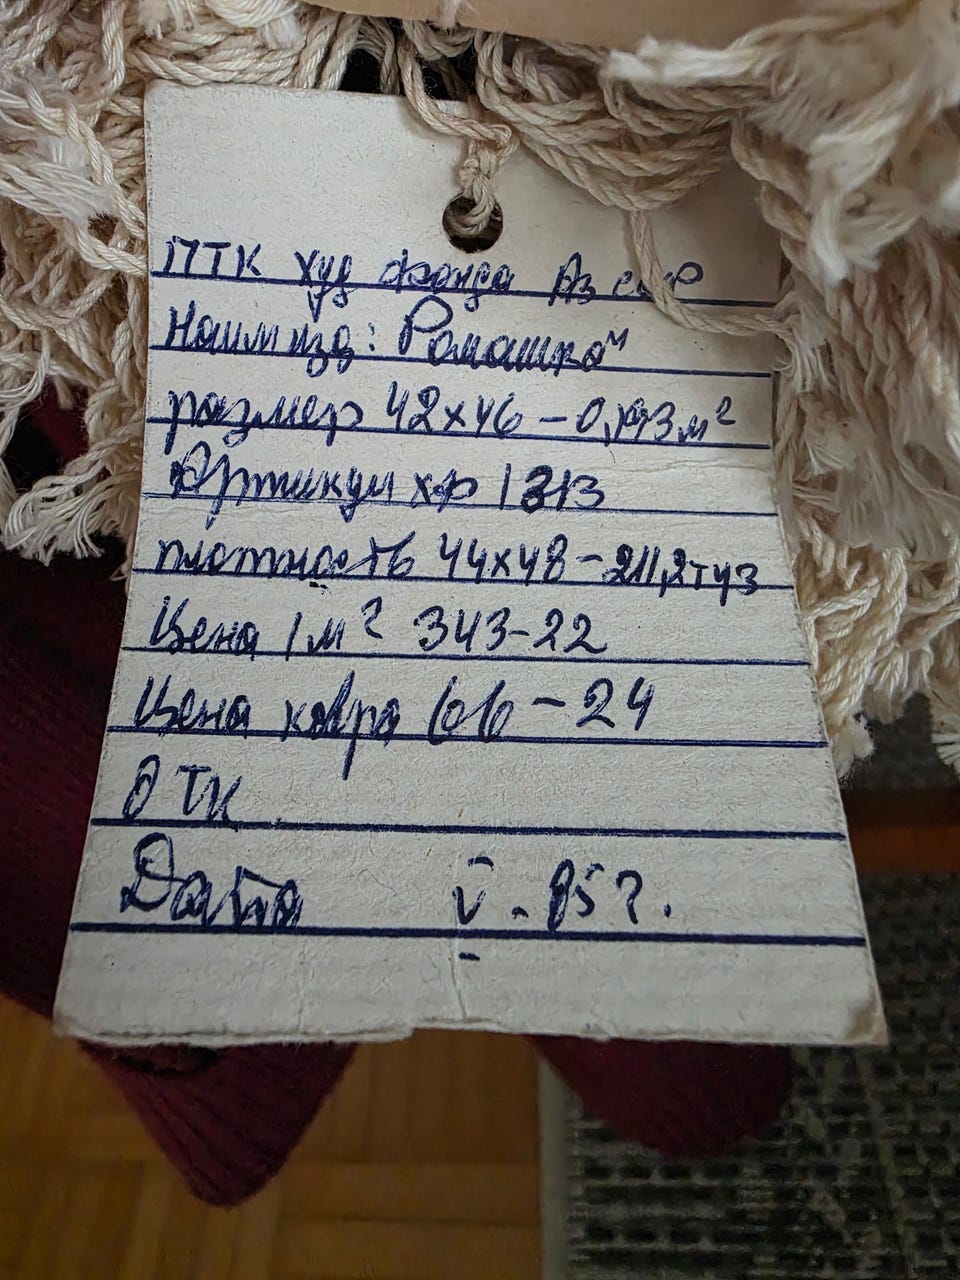 ПТК худ фонда Аз сср
Наим изд: Ромашка"
размер 42х46 – 0,193 м²
Артикул хф 1313
плотность 44х48 – 211,2 т уз
Цена 1 м² 343-22
Цена ковра 66 – 24
ОТК
Дата V - 85 г.